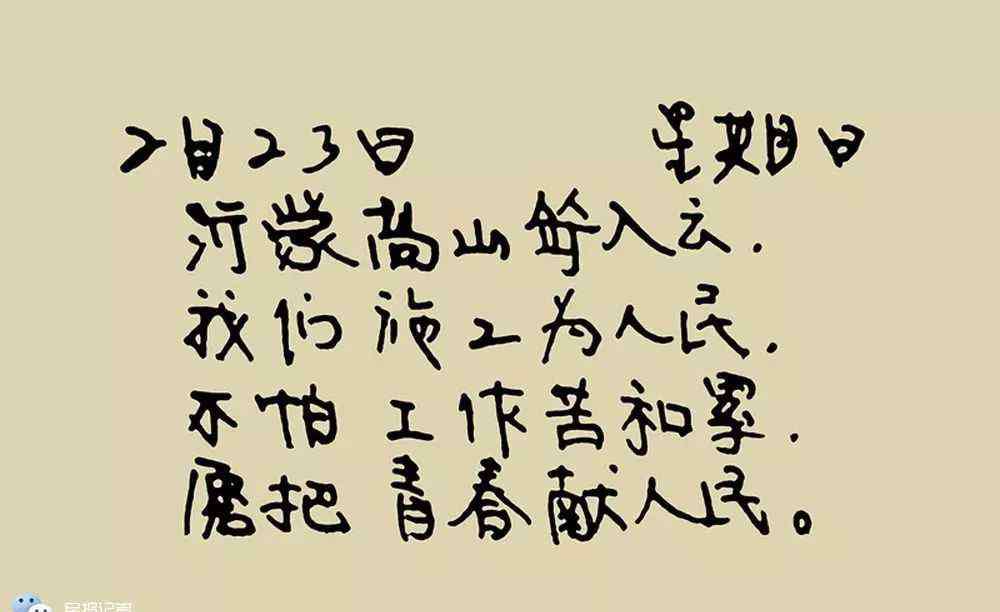 2月23日 星期日
沂蒙高山耸入云.
我们施工为人民.
不怕工作苦和累.
愿把青春献人民。